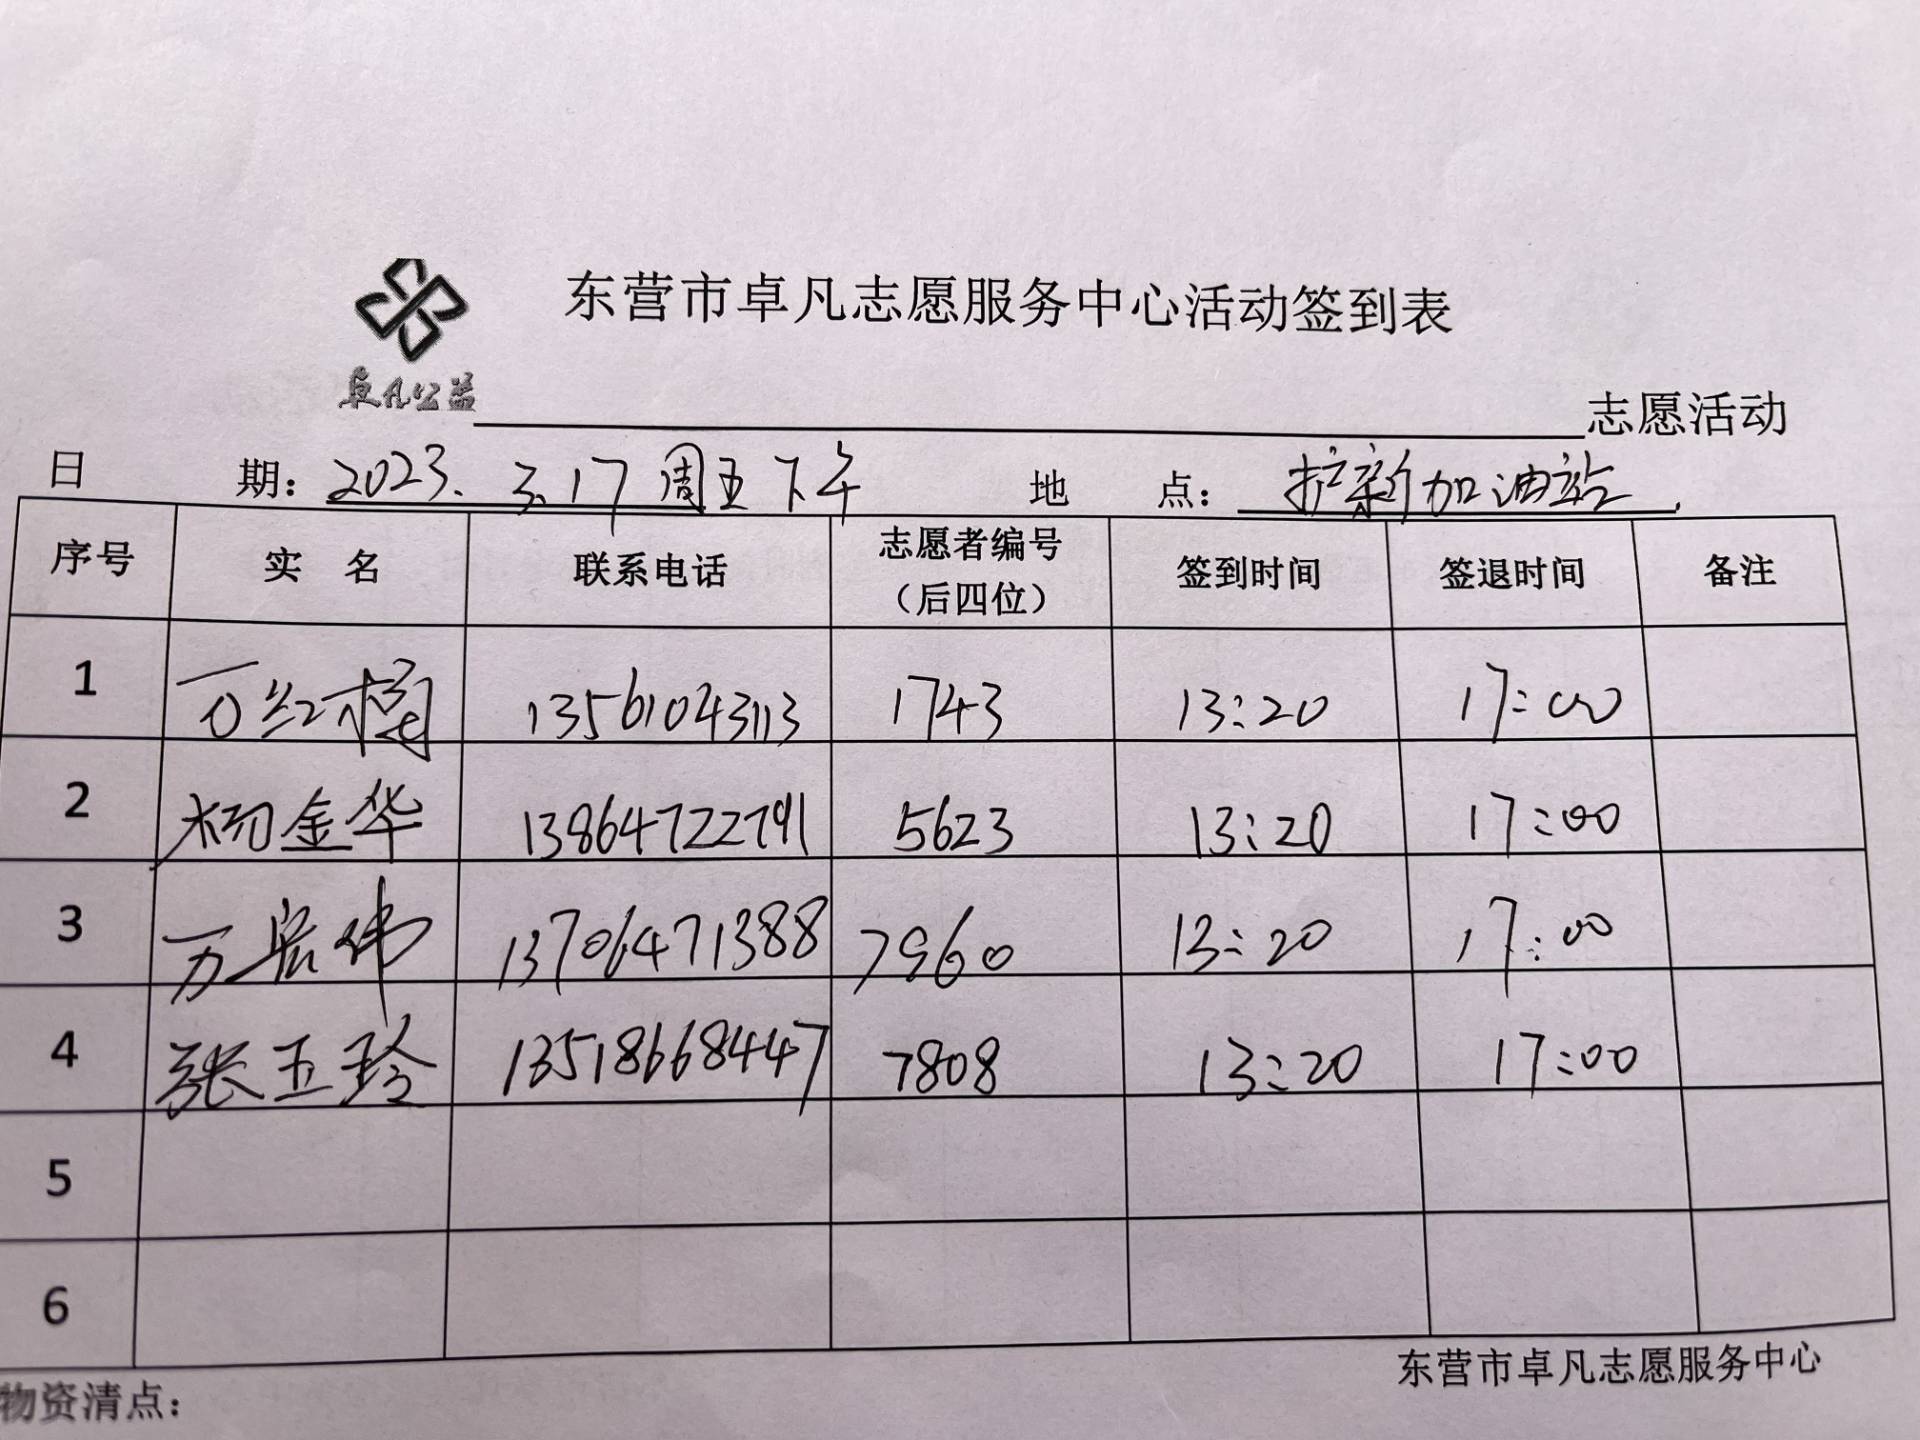 东营市卓凡志愿服务中心活动签到表
卓凡公益
志愿活动
日 期：2023.3.17 周五下午 地 点：护新加油站
序号 实 名 联系电话 志愿者编号（后四位） 签到时间 签退时间 备注
1 万红梅 13561043113 1743 13:20 17:00
2 杨金华 13864722791 5623 13:20 17:00
3 万宏伟 13706471388 7960 13:20 17:00
4 张玉玲 13518668447 7808 13:20 17:00
5
6
东营市卓凡志愿服务中心
物资清点：